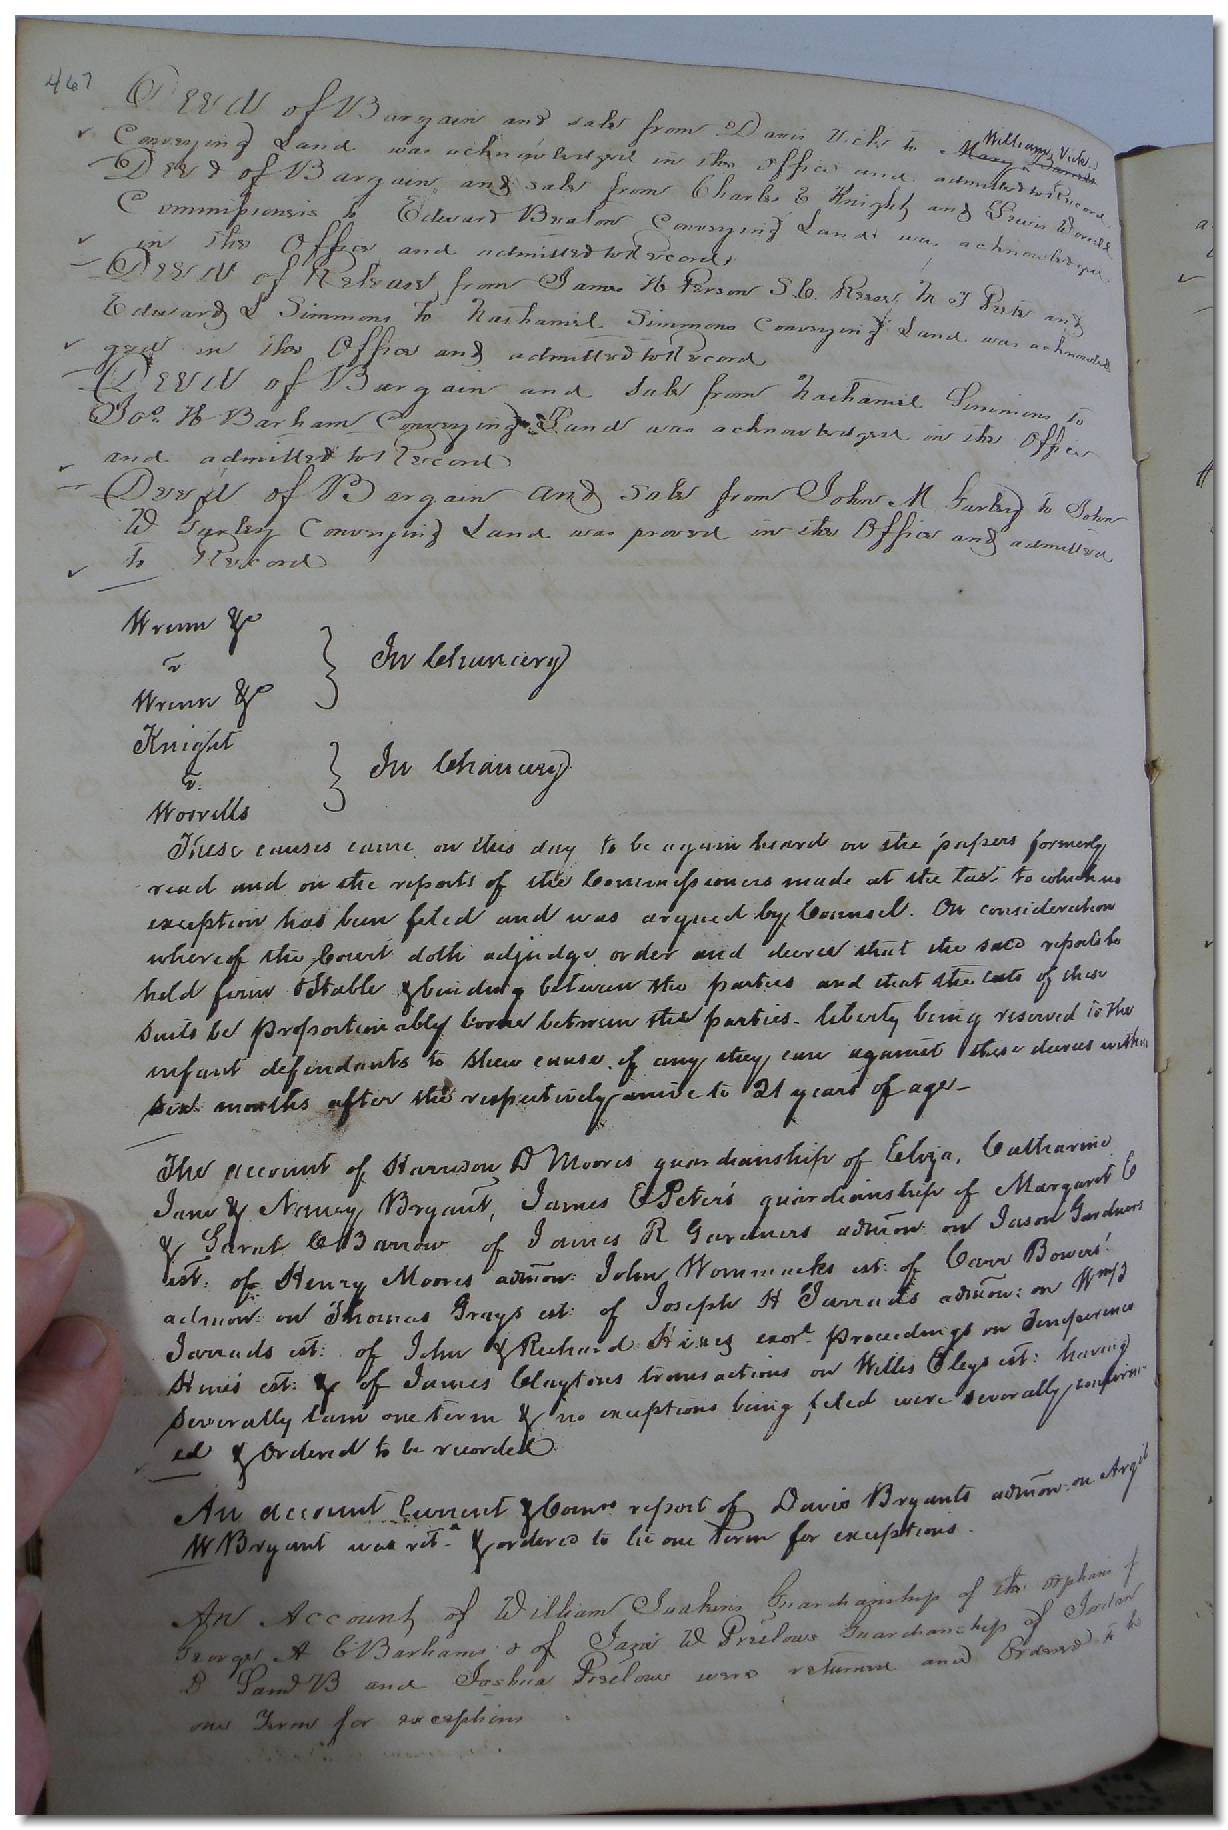 467
Deed of Bargain and sale from Davis Vick to Mary William Vick
Conveying Land was acknowledged in the office and admitted to Record
Deed of Bargain and sale from Charles E Knight and Lewis Worrell
Commissioners to Edward Beaton Conveying Land was acknowledged
in the Office and admitted to Record
Deed of Release from James H Person S. C. and
Edward L Simmons to Nathaniel Simmons Conveying Land was acknowled
ged in the Office and admitted to Record
Deed of Bargain and Sale from Nathaniel Simmons to
Jos. H Barham Conveying Land was acknowledged in the Office
and admitted to Record
Deed of Bargain and Sale from John M Gurley to John
W Gurley Conveying Land was proved in the Office and admitted
to Record
Wrenn &c
v
Wrenn &c
} In Chancery
Knight
v.
Worrells
} In Chancery
These causes came on this day to be again heard on the papers formerly
read and on the reports of the Commissioners made at the last to which no
exception has been filed and was argued by Counsel. On consideration
whereof the Court doth adjudge order and decree that the said reports be
held firm & Stable & binding between the parties and that the costs of these
suits be proportionably borne between the parties. liberty being reserved to the
infant defendants to shew cause if any they can against these decrees within
six months after the respectively arrive to 21 years of age—
The account of Harrison D Moores guardianship of Eliza, Catharine
Jane & Nancy Bryant, James E Peter's guardianship of Margaret E
& Sarah C Barrow of James R Gardners admon: on Jason Gardners
est: of Henry Moores admon: John Wommacks est: of Carr Bowers'
admon: on Thomas Grays est: of Joseph H Jarrads admon: on Wm B
Jarrads est: of John & Richard Hines exors. proceedings on Temperance
Hines est: & of James Claytons transactions on Willis Oleys est: having
severally lain one term & no exceptions being filed were severally confirm
ed & Ordered to be recorded
An account Current & Comrs report of Davis Bryants admon: on
W Bryant was retd. & ordered to lie one Term for exceptions.
An Account of William Guardianship of the orphans of
George A C Barhams & of W Prelows Guardianship of Jordan
and Joshua Prelow were returned and Ordered to lie
one Term for exceptions.